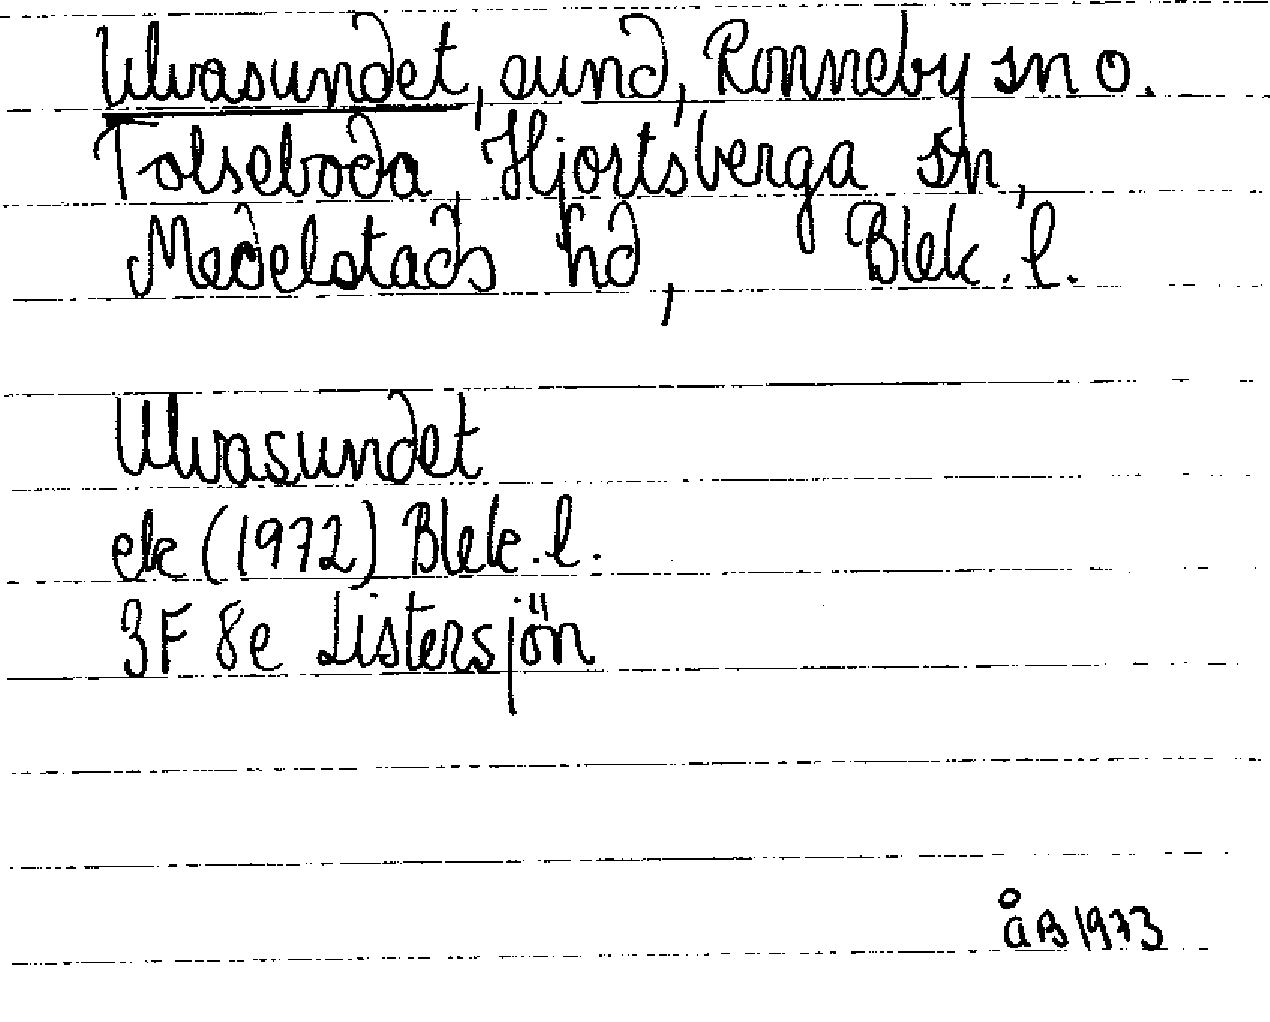 Ulvasundet, sund, Ronneby sn o.
Tolseboda, Hjortsberga sn,
Medelstads hd, Blek. l.
Ulvasundet
ek (1972) Blek. l.
3F 8e Listersjön
ÅB 1973